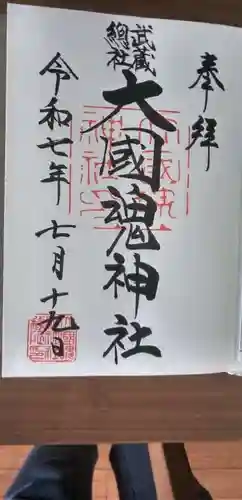 奉拝
武蔵
總社
大國魂神社
令和七年 七月十九日